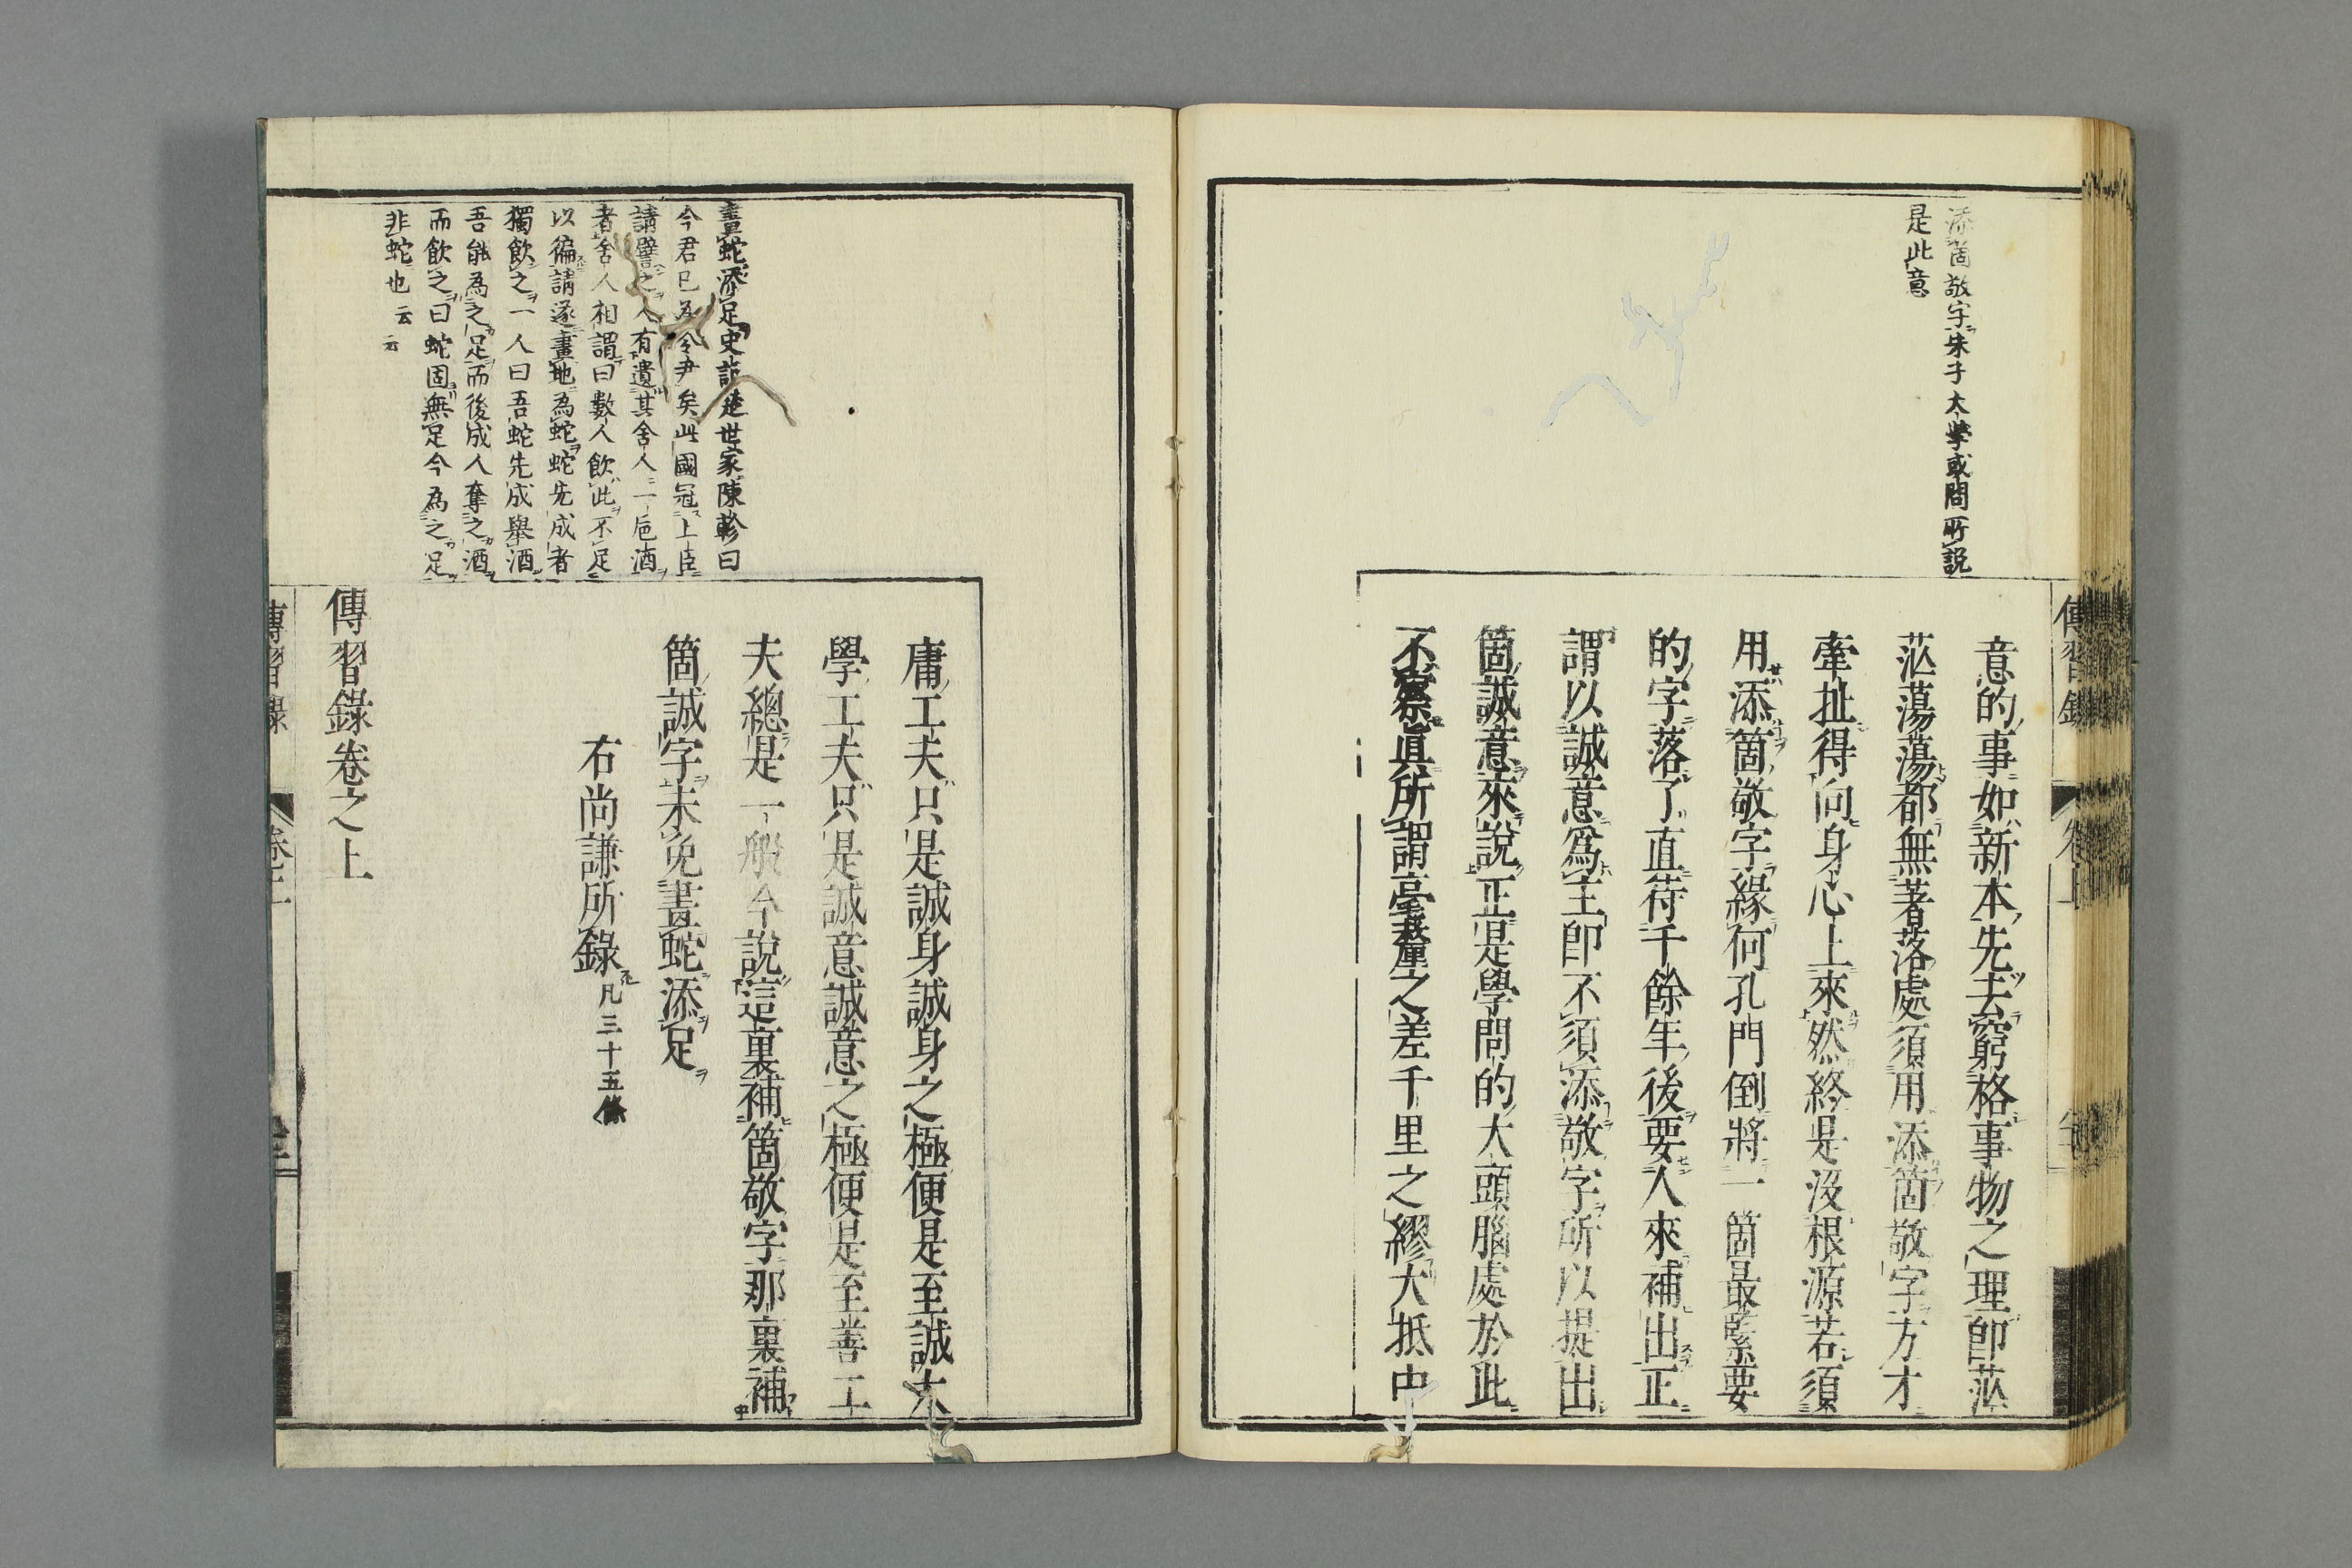 添箇敬字朱子大學或問所說
是此意
意的事如新本先去窮格事物之理卽茫
茫蕩蕩都無著落處須用添箇敬字方才
牽扯得向身心上來然終是沒根源若須
用添箇敬字緣何孔門倒將一箇最緊要
的字落了直待千餘年後要人來補出正
謂以誠意爲主卽不須添敬字所以提出
箇誠意來說正是學問的大頭腦處於此
不察眞所謂毫釐之差千里之繆大抵中
畫蛇添足史記楚世家陳軫曰
今君已為令尹矣此國冠上臣
請譬之人有遺其舍人一巵酒
者舍人相謂曰數人飲此不足
以徧請遂畫地為蛇蛇先成者
獨飲之一人曰吾蛇先成舉酒
吾能為之足而後成人奪之酒
而飲之曰蛇固無足今為之足
非蛇也云云
庸工夫只是誠身誠身之極便是至誠大
學工夫只是誠意誠意之極便是至善工
夫總是一般今說這裏補箇敬字那裏補
箇誠字未免畫蛇添足
右尚謙所錄凡三十五條
傳習錄卷之上